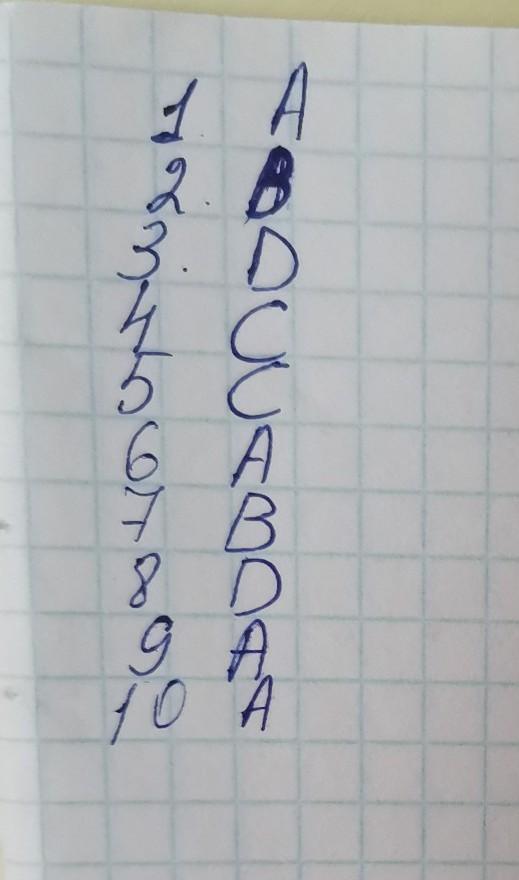 1. A
2. B
3. D
4 C
5 C
6 A
7 B
8 D
9 A
10 A